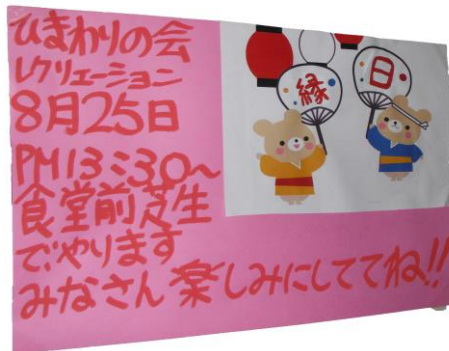 ひまわりの会
レクリエーション
8月25日
PM13:30~
食堂前芝生
でやります
みなさん 楽しみにしててね!!
縁
日